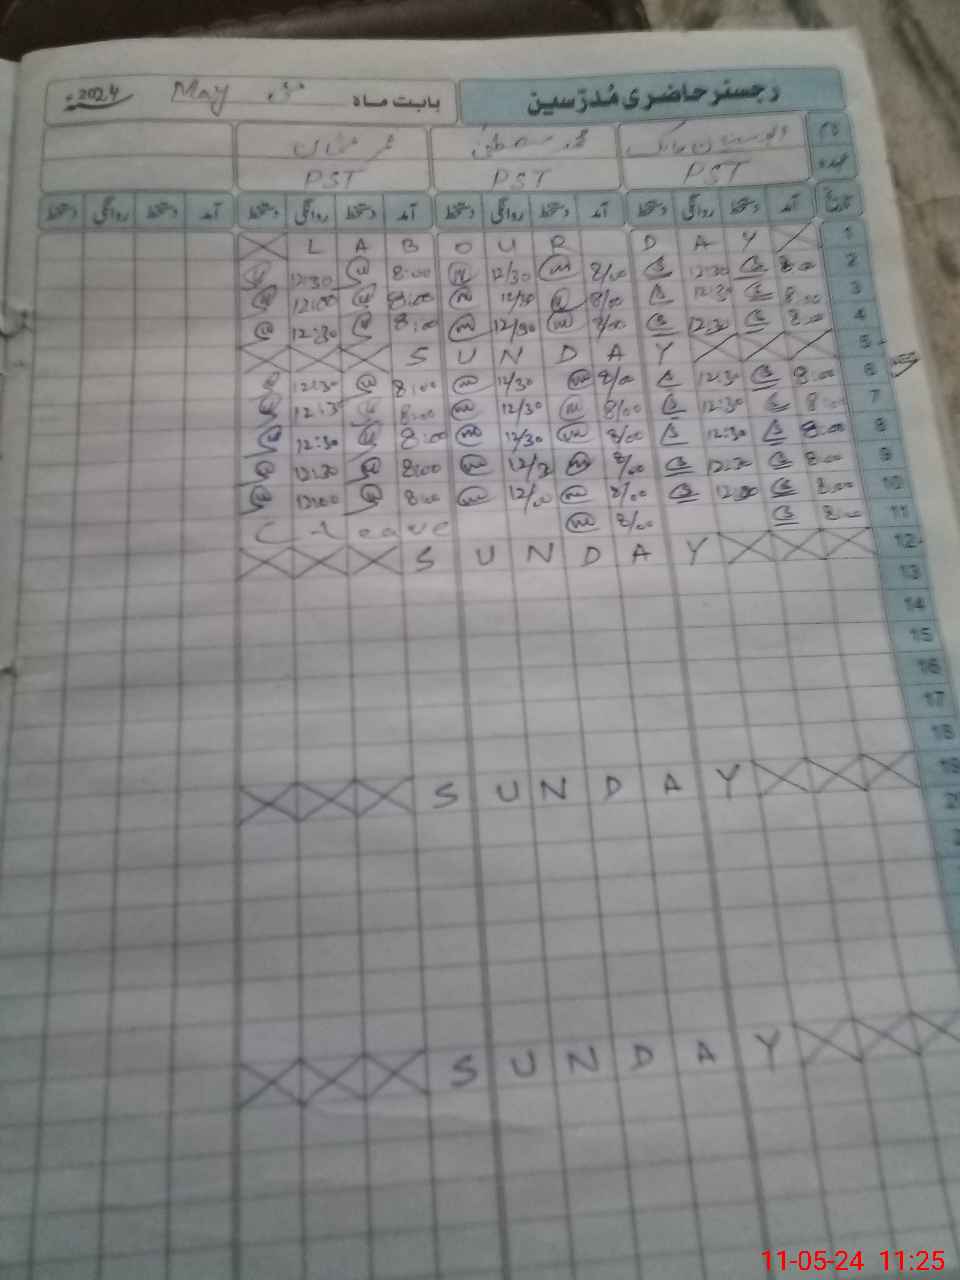 رجسٹر حاضری مُدرّسین
بابت ماہ مئی May 2024ء
نام
عہدہ PST PST PST
تاریخ آمد دستخط روانگی دستخط آمد دستخط روانگی دستخط آمد دستخط روانگی دستخط آمد دستخط روانگی دستخط
L A B O U R D A Y 1
12:30 8:00 12/30 8/00 12:30 8:00 2
12:00 8:00 12/30 8/00 12:30 8:00 3
12:30 8:00 12/30 8/00 12:30 8:00 4
S U N D A Y 5
12:30 8:00 12/30 8/00 12:30 8:00 6
12:30 8:00 12/30 8/00 12:30 8:00 7
12:30 8:00 12/30 8/00 12:30 8:00 8
12:30 8:00 12/30 8/00 12:30 8:00 9
12:00 8:00 12/00 8/00 12:00 8:00 10
C Leave 8/00 8:00 11
S U N D A Y 12
13
14
15
16
17
18
S U N D A Y 19
S U N D A Y
11-05-24 11:25